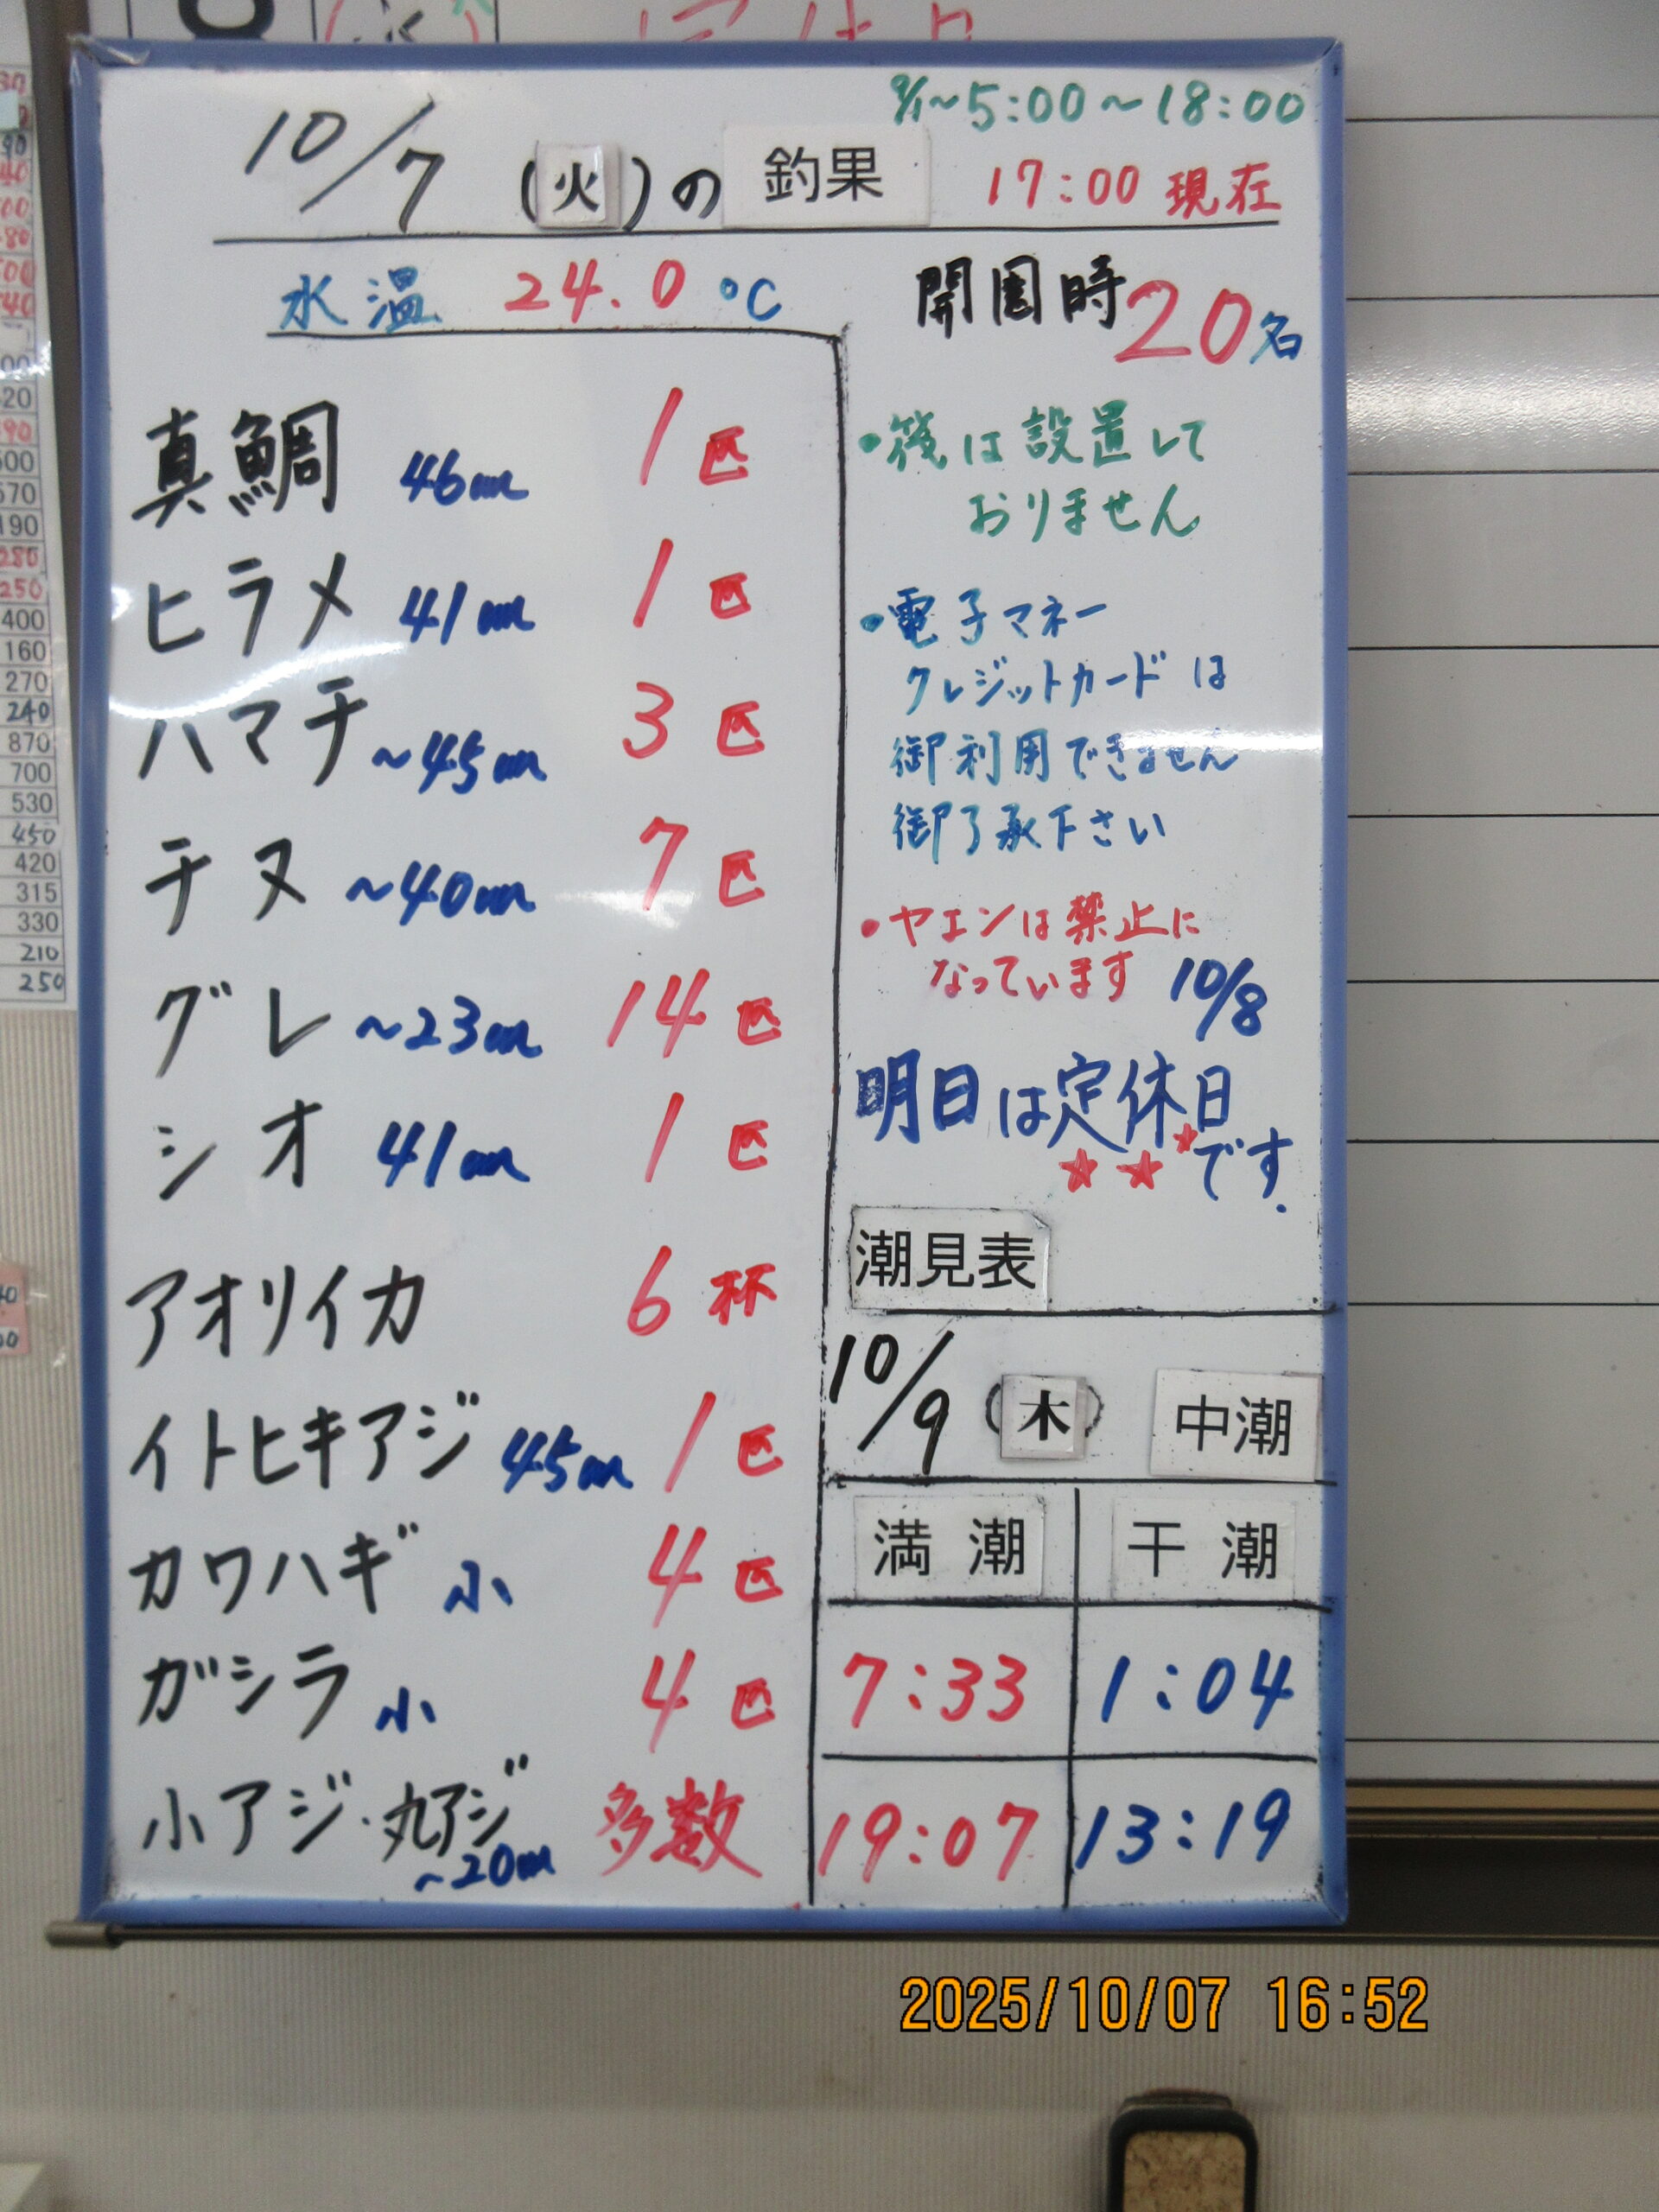 9/1~5:00~18:00
10/7 (火)の 釣果 17:00 現在
水温 24.0 ℃
開園時 20名
真鯛 46cm 1匹
ヒラメ 41cm 1匹
ハマチ ~45cm 3匹
チヌ ~40cm 7匹
グレ ~23cm 14匹
シオ 41cm 1匹
アオリイカ 6杯
イトヒキアジ 45cm 1匹
カワハギ 小 4匹
ガシラ 小 4匹
小アジ・丸アジ ~20cm 多数
・筏は設置して
おりません
・電子マネー
クレジットカードは
御利用できません
御了承下さい
・ヤエンは禁止に
なっています
10/8
明日は定休日
★★★です.
潮見表
10/9 (木) 中潮
満潮 干潮
7:33 1:04
19:07 13:19
400
160
270
240
870
700
530
450
420
315
330
210
250
2025/10/07 16:52